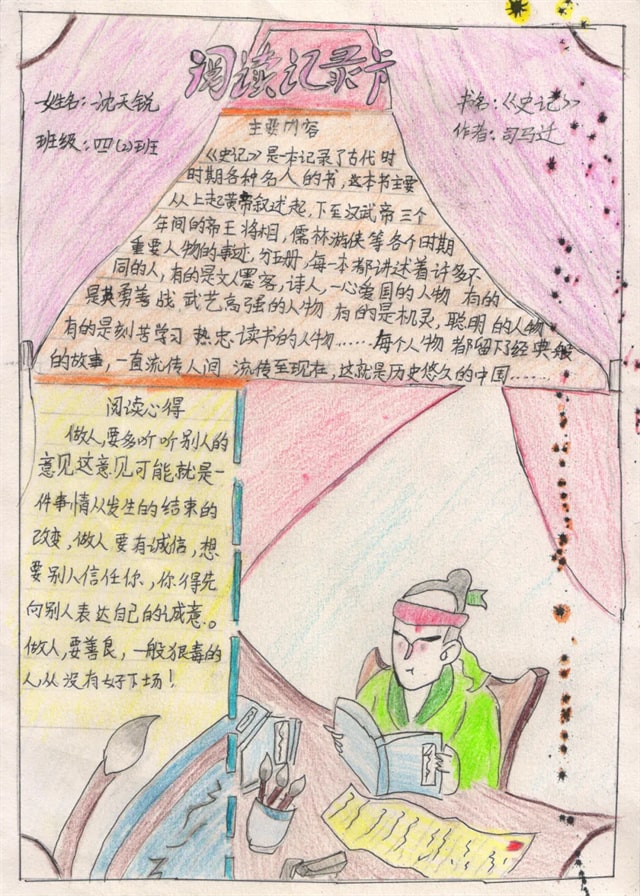 阅读记录卡
姓名：沈天锐
班级：四（2）班
书名：《史记》
作者：司马迁
主要内容
《史记》是本记录了古代时
时期各种名人的书，这本书主要
从上起黄帝叙述起，下至汉武帝三个
年间的帝王将相，儒林游侠等各个时期
重要人物的事迹，分五册，每一本都讲述着许多不
同的人，有的是文人墨客，诗人，一心爱国的人物 有的
是英勇善战 武艺高强的人物 有的是机灵，聪明的人物
有的是刻苦学习 热忠读书的人物……每个人物都留下了经典般
的故事，一直流传人间 流传至现在，这就是历史悠久的中国……
阅读心得
做人，要多听听别人的
意见这意见可能就是一
件事情从发生的结束的
改变，做人要有诚信，想
要别人信任你，你得先
向别人表达自己的诚意。
做人，要善良，一般狠毒的
人，从没有好下场！